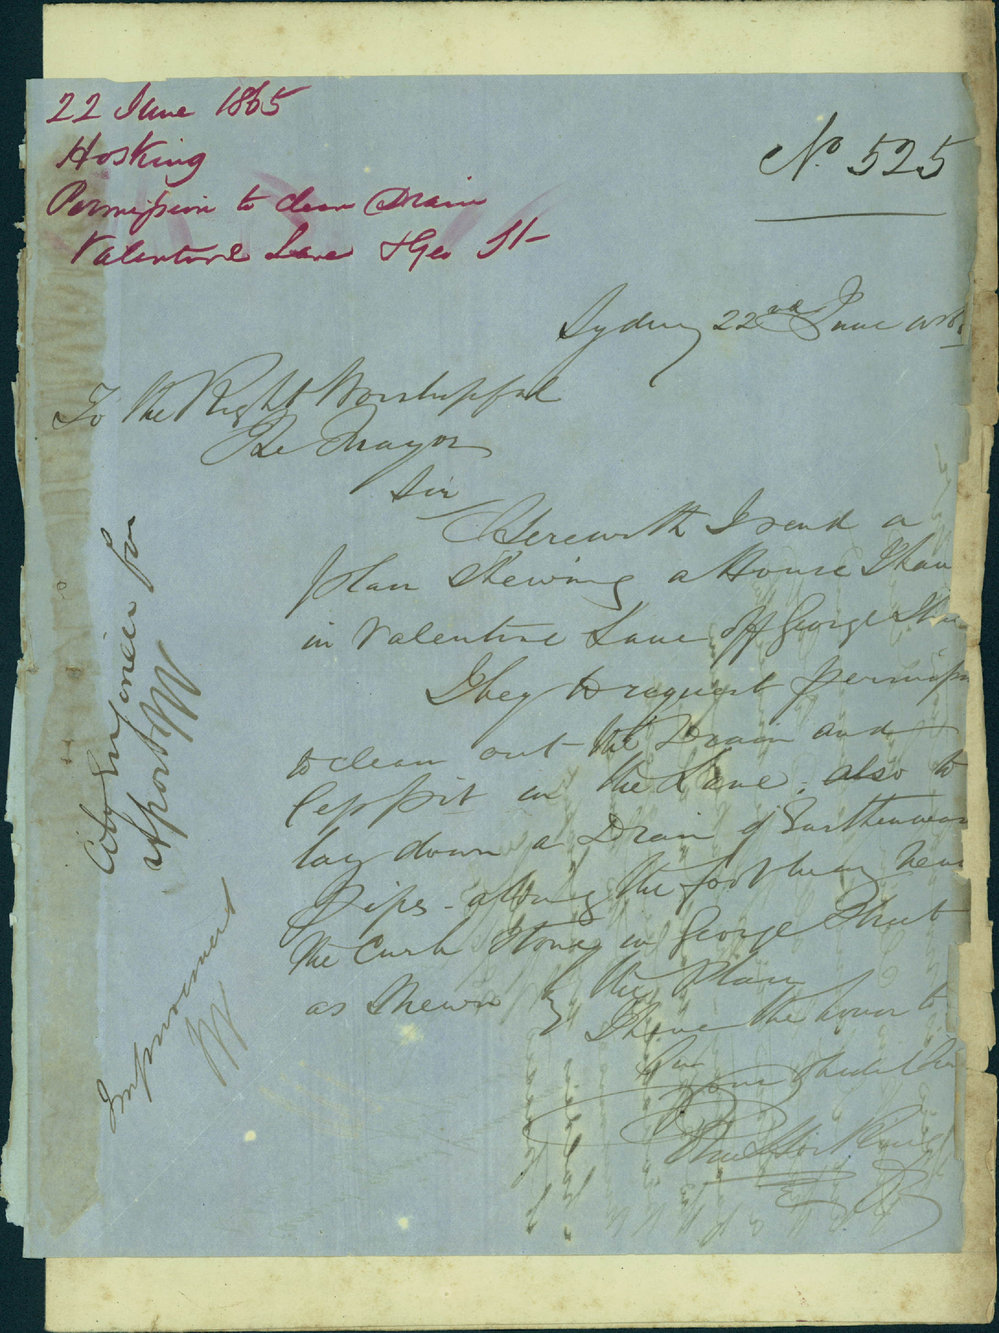 22 June 1865
Hosking
Permission to clean Drain
Valentine Lane & Geo St
No 525
Sydney 22nd June 186
To the Right Worshipful
The Mayor
Sir
Herewith I send a
plan Shewing a House I hav
in Valentine Lane off George Stree
I beg to request permissi
to clean out the Drain and
Cesspit in the Lane, also to
lay down a Drain of Earthenware
Pipes along the footway near
the Curb Stone in George Street
as Shewn by the Plan
I have the honor to
Sir
Your
Hosking
City Engineer for
report
Improvement